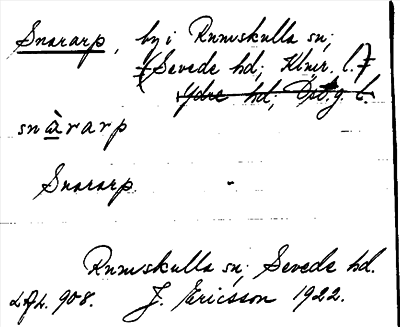 Snararp, by i Rumskulla sn;
(Sevede hd; Klmr. l.)
Ydre hd; Östg. l.
snàrarp
Snararp
Rumskulla sn; Sevede hd.
LAL. 908. J. Ericsson 1922.